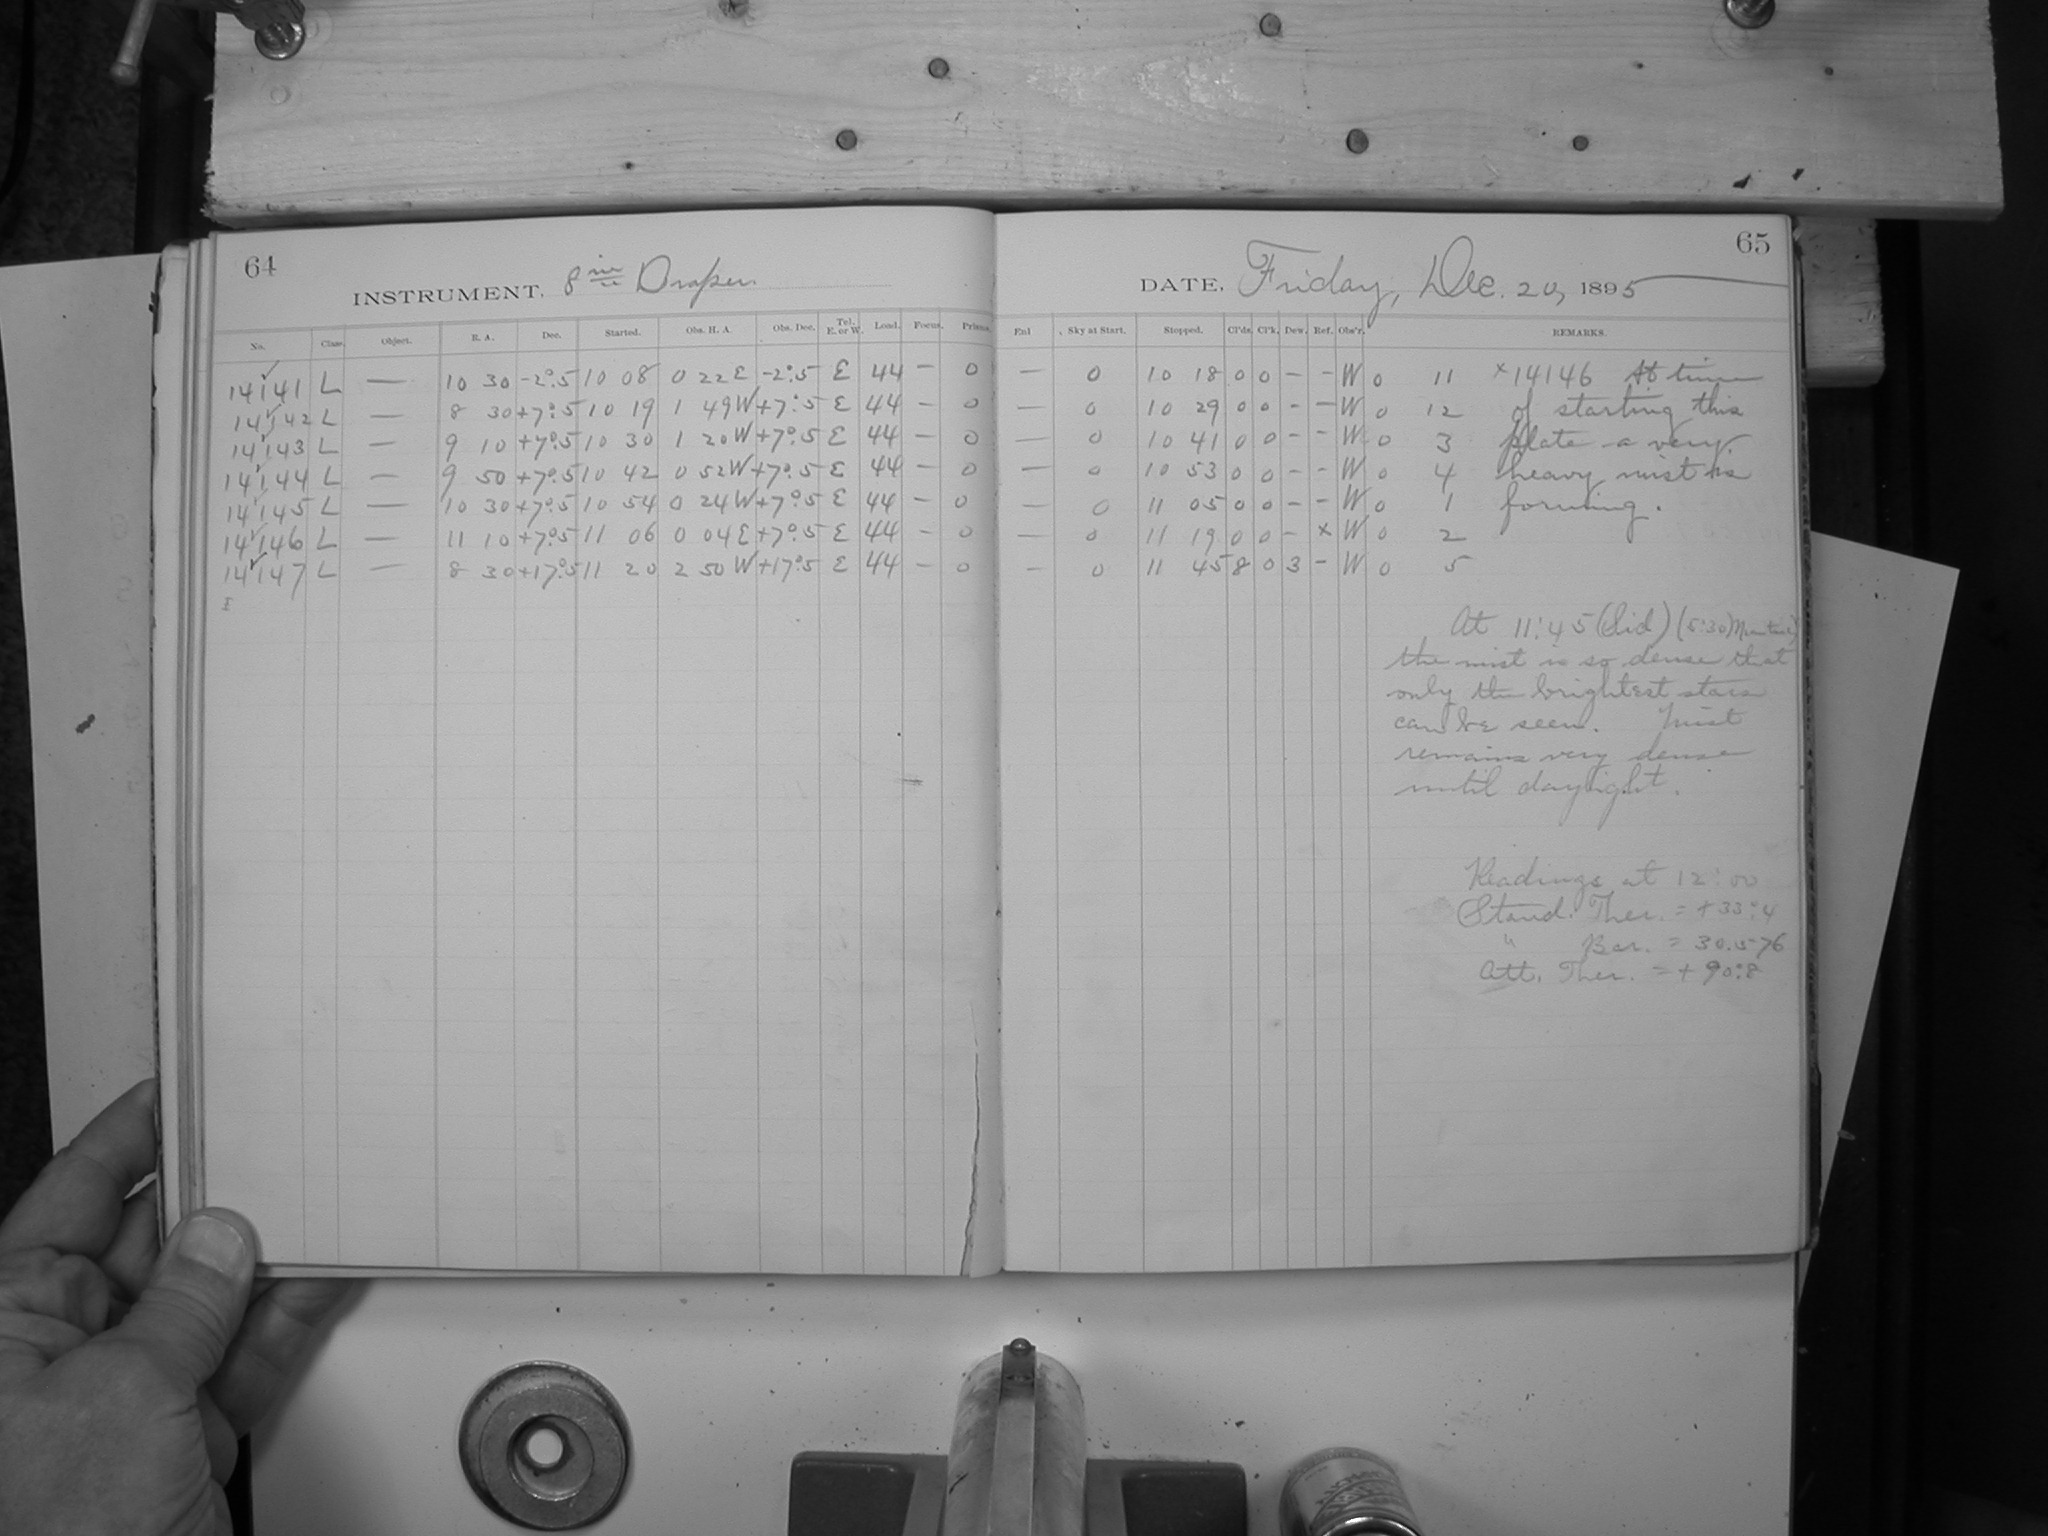 64
INSTRUMENT. 8 in Draper.
No. Class. Object. R. A. Dec. Started. Obs. H. A. Obs. Dec. Tel. E. or W. Load. Focus. Prisms.
14141 L — 10 30 -2°.5 10 08 0 22 E -2°.5 E 44 — 0
14142 L — 8 30 +7°.5 10 19 1 49 W +7°.5 E 44 — 0
14143 L — 9 10 +7°.5 10 30 1 20 W +7°.5 E 44 — 0
14144 L — 9 50 +7°.5 10 42 0 52 W +7°.5 E 44 — 0
14145 L — 10 30 +7°.5 10 54 0 24 W +7°.5 E 44 — 0
14146 L — 11 10 +7°.5 11 06 0 04 E +7°.5 E 44 — 0
14147 L — 8 30 +17°.5 11 20 2 50 W +17°.5 E 44 — 0
65
DATE. Friday, Dec. 20, 1895
Enl Sky at Start. Stopped. Cl'ds. Cl'k. Dew. Ref. Obs'r. REMARKS.
— 0 10 18 0 0 - - W 0 11 ×14146 At time
— 0 10 29 0 0 - - W 0 12 of starting this
— 0 10 41 0 0 - - W 0 3 plate a very
— 0 10 53 0 0 - - W 0 4 heavy mist is
— 0 11 05 0 0 - - W 0 1 forming.
— 0 11 19 0 0 - × W 0 2
— 0 11 45 8 0 3 - W 0 5
At 11:45 (Sid) (5:30)
the mist is so dense that
only the brightest stars
can be seen. Mist
remains very dense
until daylight.
Readings at 12:00
Stand. Ther. = +33°.4
" Bar. = 30.576
Att. Ther. = + 90°.8